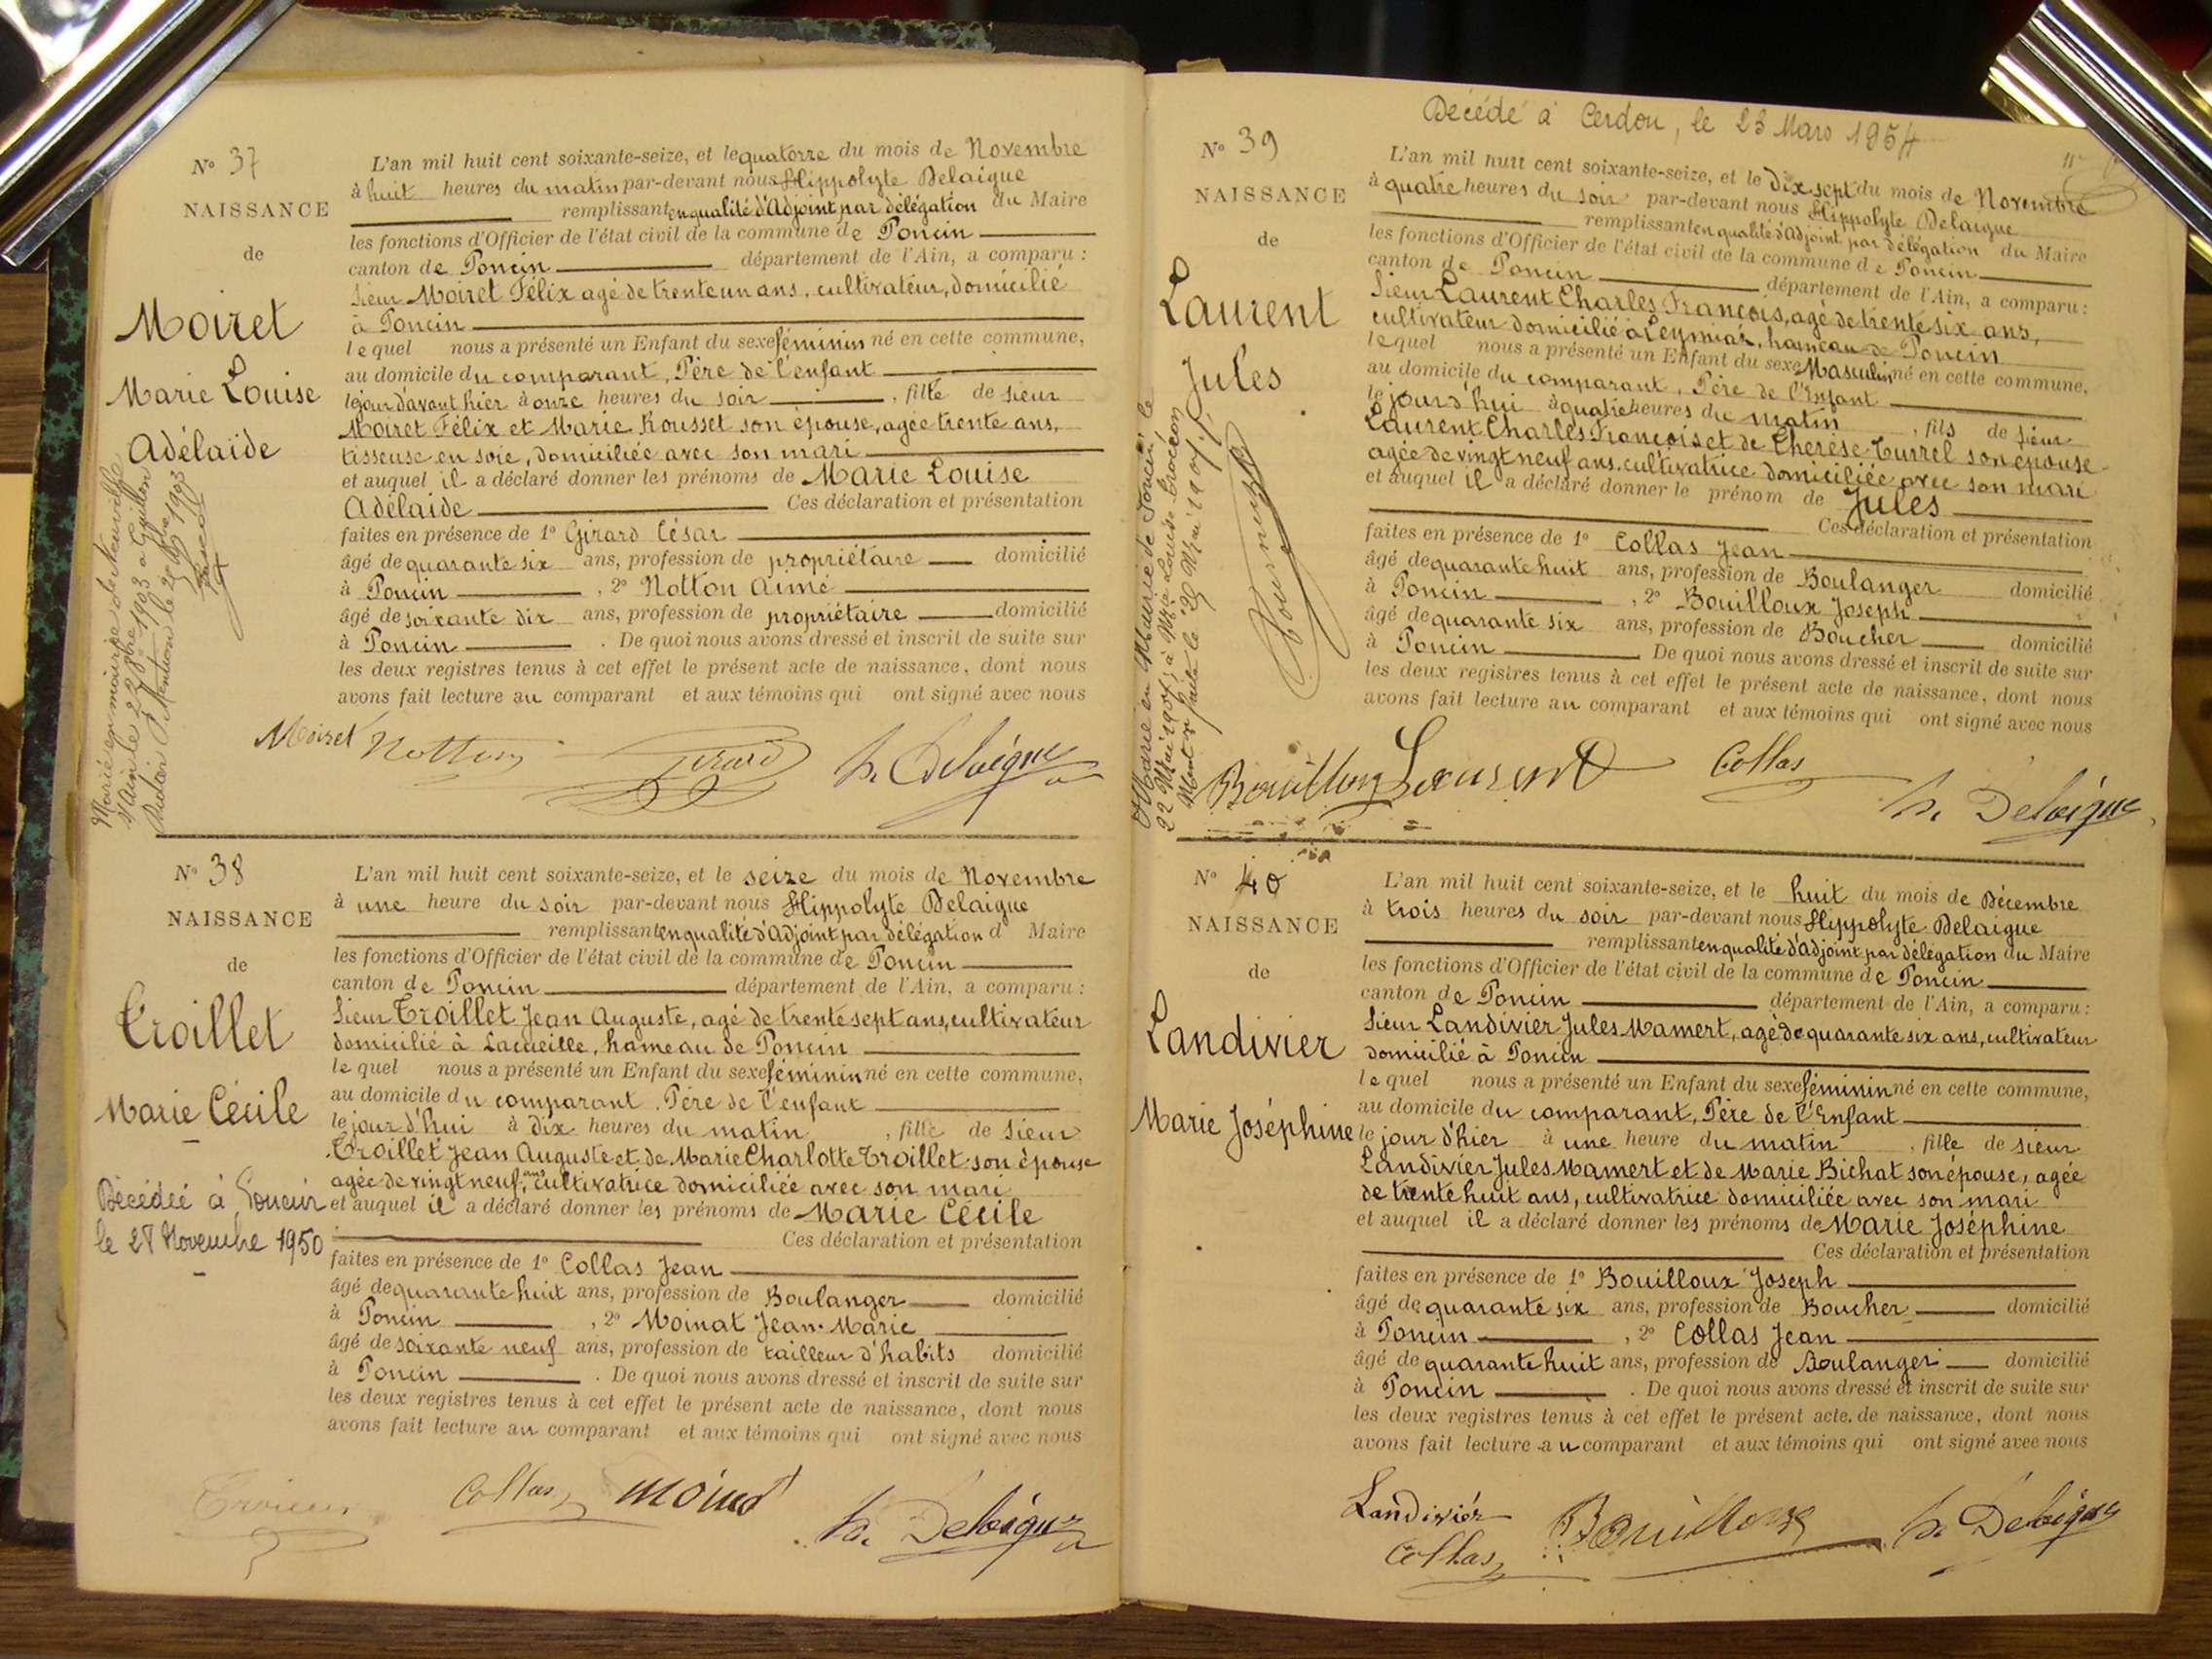 N° 37
NAISSANCE
de
Moiret
Marie Louise
Adélaïde
Marié en mairie de Neuville
s/Ain le 22 8bre 1903 à Guillon
L'an mil huit cent soixante-seize, et le quatorze du mois de Novembre
à huit heures du matin par-devant nous Hippolyte Delaigue
remplissant en qualité d'Adjoint par délégation du Maire
les fonctions d'Officier de l'état civil de la commune de Poncin
canton de Poncin département de l'Ain, a comparu :
Sieur Moiret Félix agé de trente un ans, cultivateur, domicilié
à Poncin
lequel nous a présenté un Enfant du sexe féminin né en cette commune,
au domicile du comparant, Père de l'enfant
le jour d'avant hier à onze heures du soir , fille de sieur
Moiret Félix et Marie Rousset son épouse, agée trente ans,
tisseuse en soie, domiciliée avec son mari
et auquel il a déclaré donner les prénoms de Marie Louise
Adélaïde Ces déclaration et présentation
faites en présence de 1° Girard César
âgé de quarante six ans, profession de propriétaire domicilié
à Poncin , 2° Notton Aimé
âgé de soixante dix ans, profession de propriétaire domicilié
à Poncin . De quoi nous avons dressé et inscrit de suite sur
les deux registres tenus à cet effet le présent acte de naissance, dont nous
avons fait lecture au comparant et aux témoins qui ont signé avec nous
Moiret Notton Girard h. Delaigue
N° 38
NAISSANCE
de
Troillet
Marie Cécile
Décédée à Poncin
le 27 Novembre 1950
L'an mil huit cent soixante-seize, et le seize du mois de Novembre
à une heure du soir par-devant nous Hippolyte Delaigue
remplissant en qualité d'Adjoint par délégation d Maire
les fonctions d'Officier de l'état civil de la commune de Poncin
canton de Poncin département de l'Ain, a comparu :
Sieur Troillet Jean Auguste, agé de trente sept ans, cultivateur
domicilié à Lacueille, hameau de Poncin
lequel nous a présenté un Enfant du sexe féminin né en cette commune,
au domicile du comparant. Père de l'enfant
le jour d'hui à dix heures du matin , fille de Sieur
Troillet Jean Auguste et de Marie Charlotte Troillet son épouse
agée de vingt neuf ans, cultivatrice domiciliée avec son mari
et auquel il a déclaré donner les prénoms de Marie Cécile
Ces déclaration et présentation
faites en présence de 1° Collas Jean
âgé de quarante huit ans, profession de Boulanger domicilié
à Poncin , 2° Moinat Jean-Marie
âgé de soixante neuf ans, profession de tailleur d'habits domicilié
à Poncin . De quoi nous avons dressé et inscrit de suite sur
les deux registres tenus à cet effet le présent acte de naissance, dont nous
avons fait lecture au comparant et aux témoins qui ont signé avec nous
Collas Moinat h. Delaigue
Décédé à Cerdon, le 23 Mars 1954
N° 39
NAISSANCE
de
Laurent
Jules
Marié en Mairie de Poncin le
L'an mil huit cent soixante-seize, et le Dix sept du mois de Novembre
à quatre heures du soir par-devant nous Hippolyte Delaigue
remplissant en qualité d'Adjoint par délégation du Maire
les fonctions d'Officier de l'état civil de la commune de Poncin
canton de Poncin département de l'Ain, a comparu :
Sieur Laurent Charles François, agé de trente six ans,
cultivateur domicilié à Leymiat, hameau de Poncin
lequel nous a présenté un Enfant du sexe Masculin né en cette commune,
au domicile du comparant, Père de l'Enfant
le jours d'hui à quatre heures du matin , fils de sieur
Laurent Charles François et de Thérèse Turrel son épouse
agée de vingt neuf ans, cultivatrice domiciliée avec son mari
et auquel il a déclaré donner le prénom de Jules
Ces déclaration et présentation
faites en présence de 1° Collas Jean
âgé de quarante huit ans, profession de Boulanger domicilié
à Poncin , 2° Bouilloux Joseph
âgé de quarante six ans, profession de Boucher domicilié
à Poncin De quoi nous avons dressé et inscrit de suite sur
les deux registres tenus à cet effet le présent acte de naissance, dont nous
avons fait lecture au comparant et aux témoins qui ont signé avec nous
Bouilloux Laurent Collas h. Delaigue
N° 40
NAISSANCE
de
Landivier
Marie Joséphine
L'an mil huit cent soixante-seize, et le huit du mois de Décembre
à trois heures du soir par-devant nous Hippolyte Delaigue
remplissant en qualité d'Adjoint par délégation du Maire
les fonctions d'Officier de l'état civil de la commune de Poncin
canton de Poncin département de l'Ain, a comparu :
Sieur Landivier Jules Mamert, agé de quarante six ans, cultivateur
domicilié à Poncin
lequel nous a présenté un Enfant du sexe féminin né en cette commune,
au domicile du comparant, Père de l'Enfant
le jour d'hier à une heure du matin , fille de sieur
Landivier Jules Mamert et de Marie Bichat son épouse, agée
de trente huit ans, cultivatrice domiciliée avec son mari
et auquel il a déclaré donner les prénoms de Marie Joséphine
Ces déclaration et présentation
faites en présence de 1° Bouilloux Joseph
âgé de quarante six ans, profession de Boucher domicilié
à Poncin , 2° Collas Jean
âgé de quarante huit ans, profession de Boulanger domicilié
à Poncin . De quoi nous avons dressé et inscrit de suite sur
les deux registres tenus à cet effet le présent acte de naissance, dont nous
avons fait lecture au comparant et aux témoins qui ont signé avec nous
Landivier Bouilloux h. Delaigue
Collas